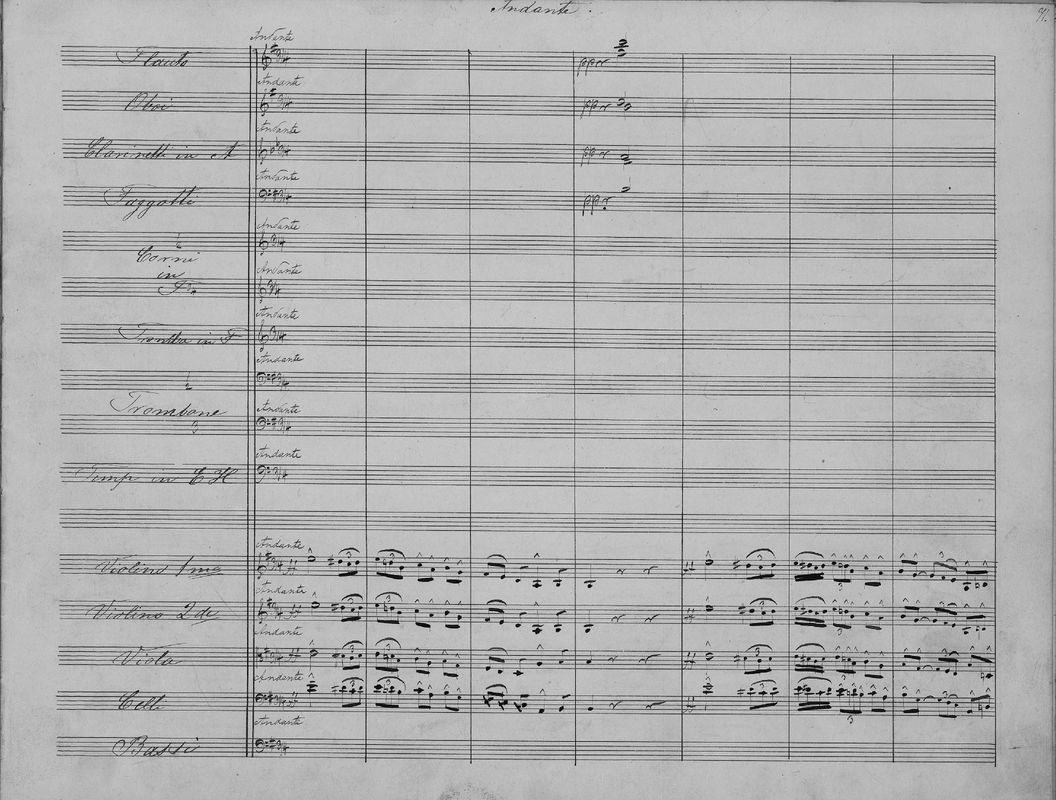 Andante.
Andante
Flauto
ppr
Andante
Oboi
ppr
Andante
Clarinetti in A
ppr
Andante
Faggotti
ppr
Andante
Corni
in
F
Andante
Andante
Tromba in F
Andante
Trombone
3
Andante
Andante
Timp in E H
Andante
Violino 1mo
ff
3
3
3
3
3
Andante
Violino 2do
ff
Andante
Viola
ff
Andante
Celli
ff
Andante
Bassi